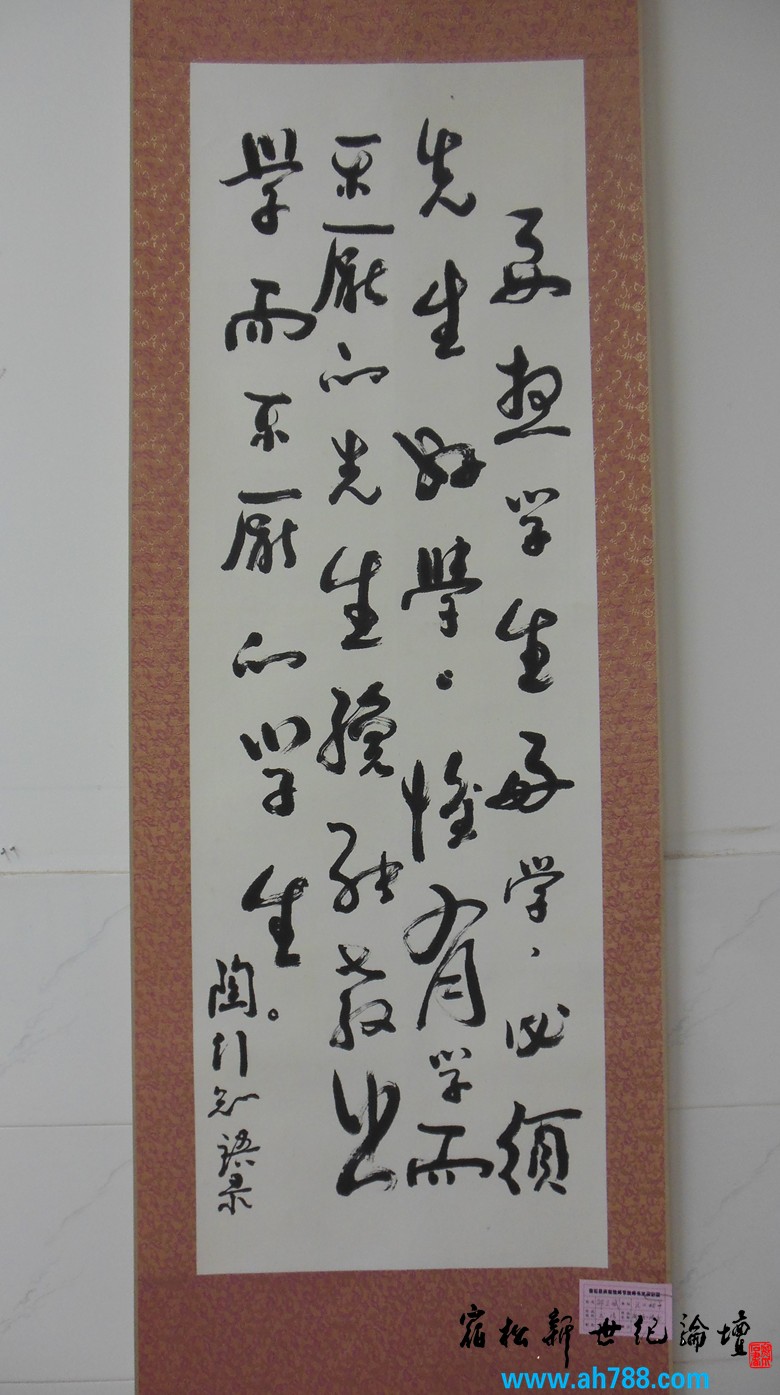 要想学生好学，必须
先生好學。惟有学而
不厭的先生纔能教出
學而不厭的学生。
陶行知語录
宿松新世纪論壇
www.ah788.com